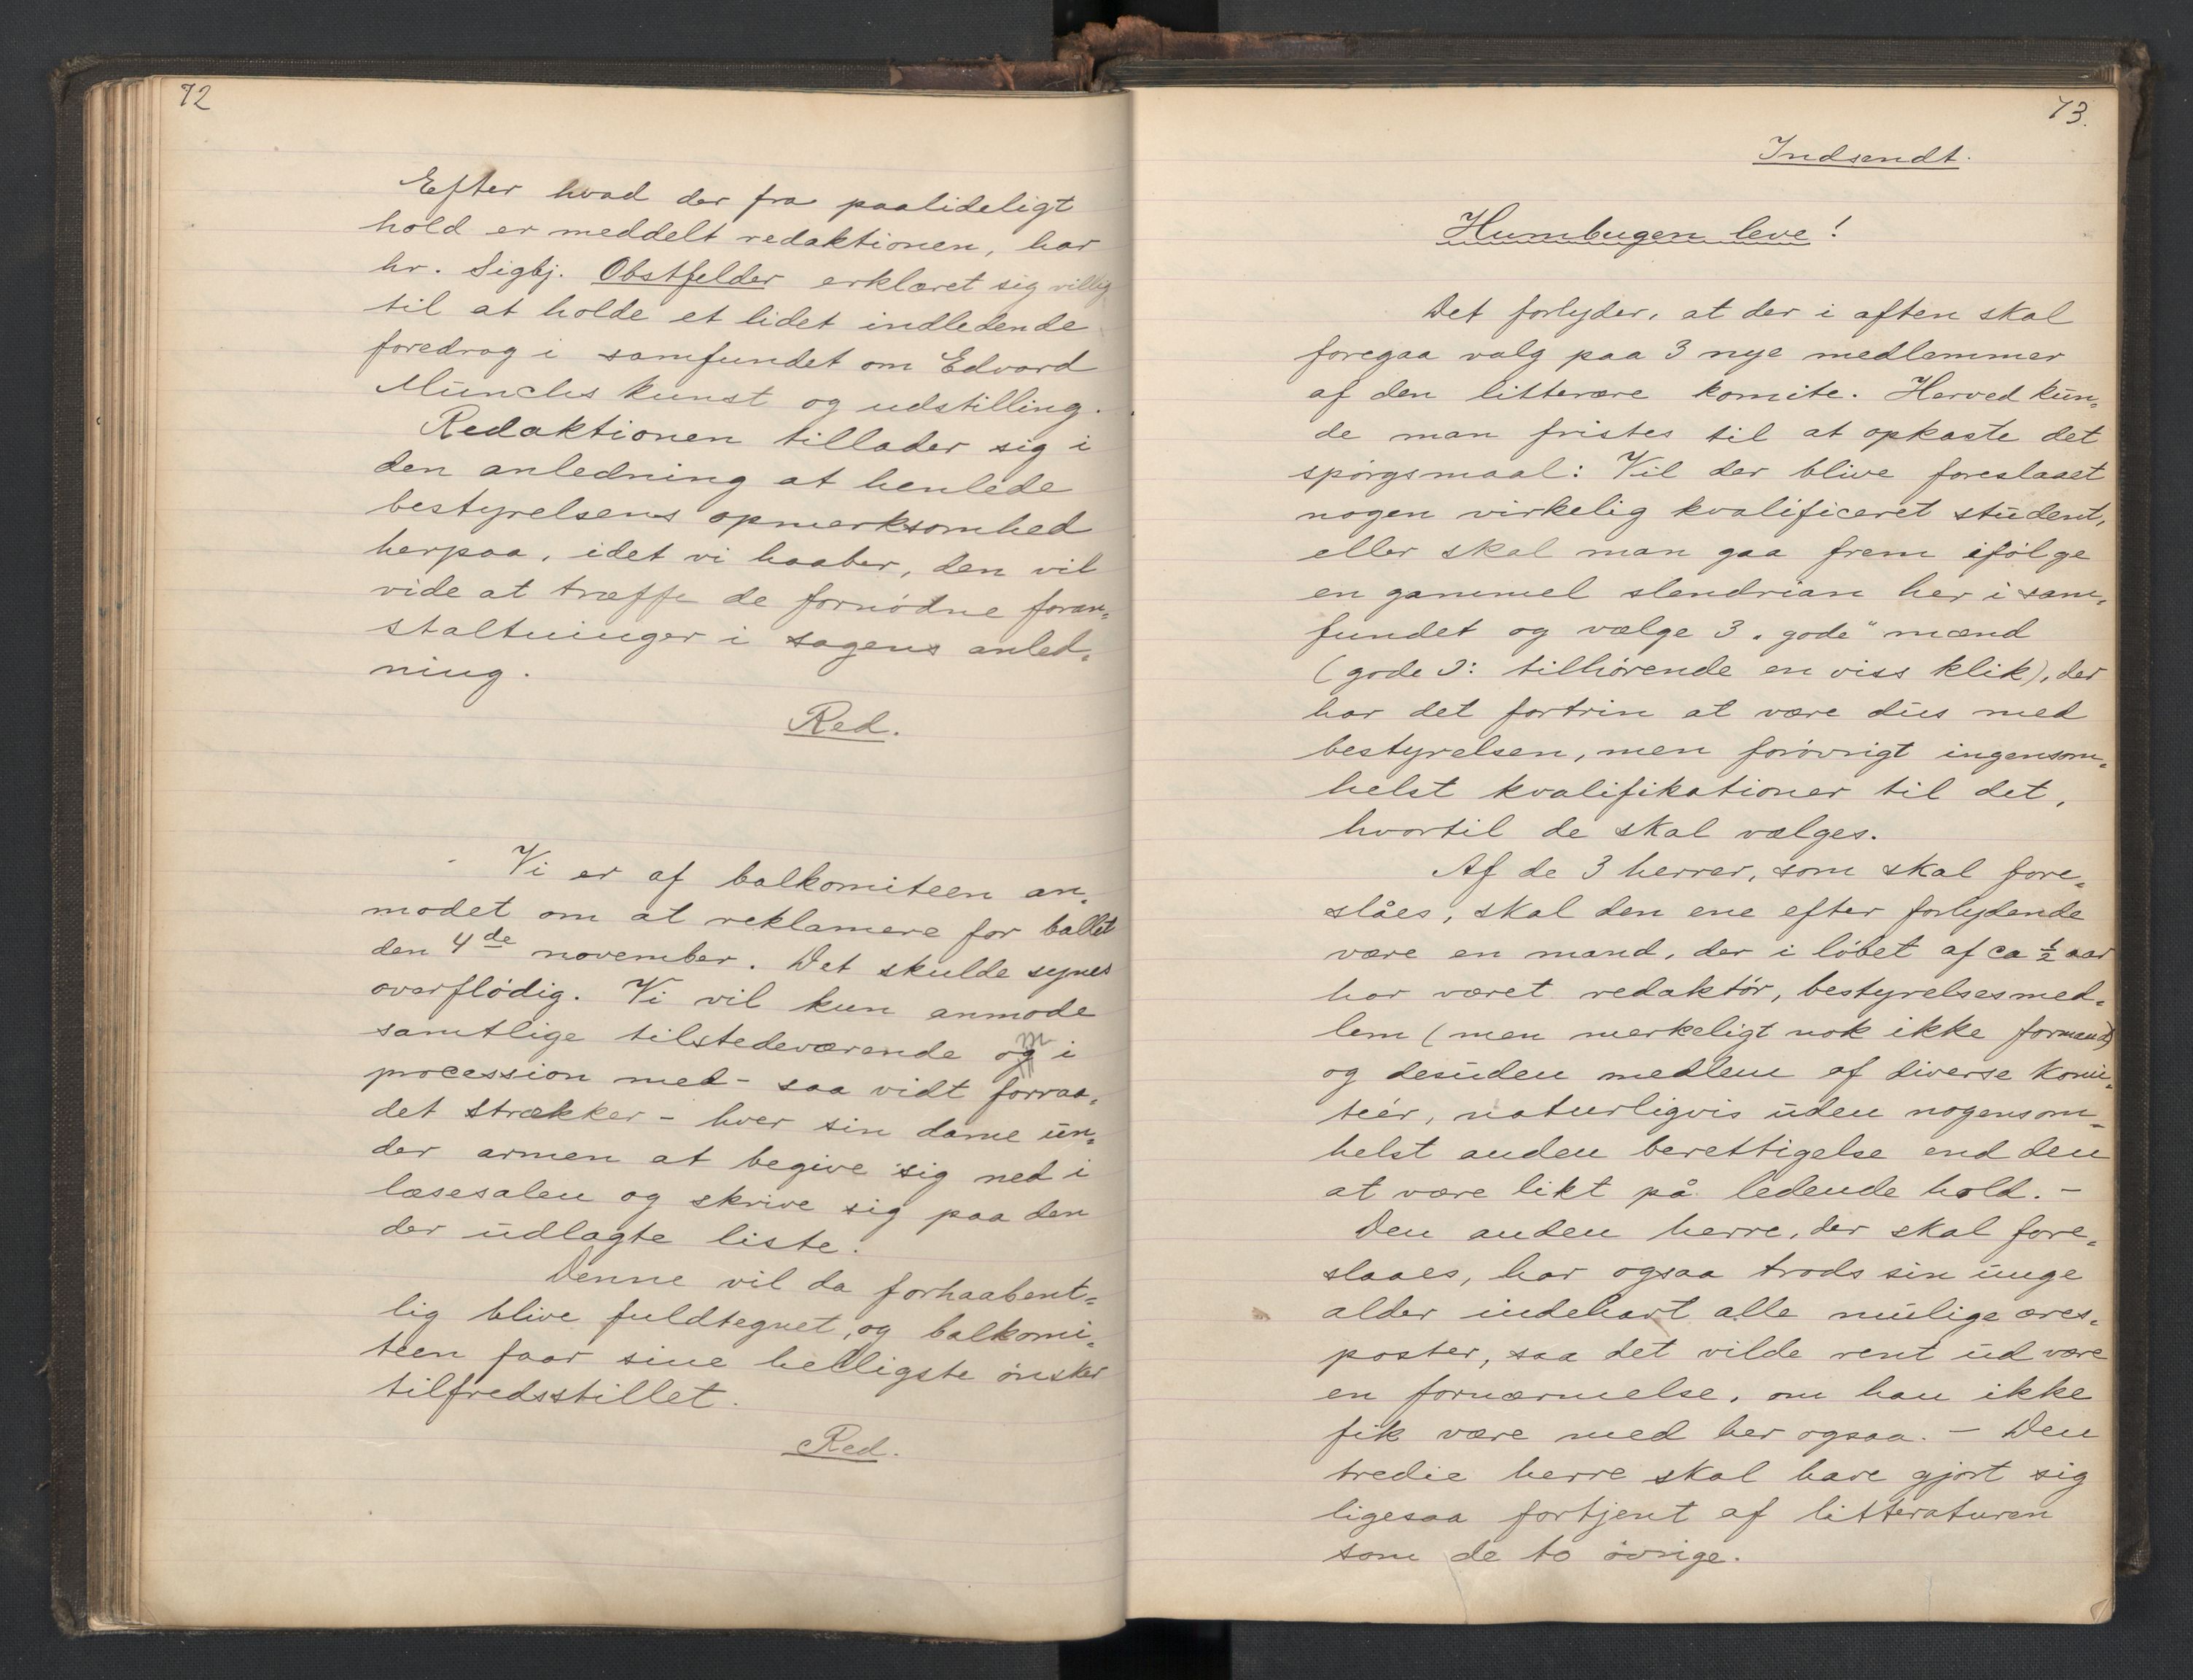 72
Efter hvad der fra paalideligt
hold er meddelt redaktionen, har
hr. Sigbj. Obstfelder erklæret sig villig
til at holde et lidet indledende
foredrag i samfundet om Edvard
Munchs kunst og udstilling.
Redaktionen tillader sig i
den anledning at henlede
bestyrelsens opmerksomhed
herpaa, idet vi haaber, den vil
vide at træffe de fornødne foran=
staltninger i sagens anled=
ning.
Red.
Vi er af balkomiteen an=
modet om at reklamere for ballet
den 4de november. Det skulde synes
overflødig. Vi vil kun anmode
samtlige tilstedeværende om i
procession med - saa vidt forraa=
det strækker - hver sin dame un=
der armen at begive sig ned i
læsesalen og skrive sig paa den
der udlagte liste.
Denne vil da forhaabent=
lig blive fuldtegnet, og balkomi=
teen faar sine helligste ønsker
tilfredsstillet.
Red.
73.
Indsendt.
Humbugen leve!
Det forlyder, at der i aften skal
foregaa valg paa 3 nye medlemmer
af den litterære komite. Herved kun=
de man fristes til at opkaste det
spørgsmaal: Vil der blive foreslaaet
nogen virkelig kvalificeret student,
eller skal man gaa frem ifølge
en gammel slendrian her i sam=
fundet og vælge 3 „gode“ mænd
(gode ɔ: tilhørende en viss klik), der
har det fortrin at være dus med
bestyrelsen, men forøvrigt ingensom=
helst kvalifikationer til det,
hvortil de skal vælges.
Af de 3 herrer, som skal fore=
slåes, skal den ene efter forlydende
være en mand, der i løbet af ca ½ aar
har været redaktør, bestyrelsesmed=
lem (men merkeligt nok ikke formand)
og desuden medlem af diverse komi=
teér, naturligvis uden nogensom=
helst anden berettigelse end den
at være likt på ledende hold. -
Den anden herre, der skal fore=
slaaes, har ogsaa trods sin unge
alder indehavt alle mulige æres=
poster, saa det vilde rent ud være
en fornærmelse, om han ikke
fik være med her ogsaa. - Den
tredie herre skal have gjort sig
ligesaa fortjent af litteraturen
som de to øvrige.